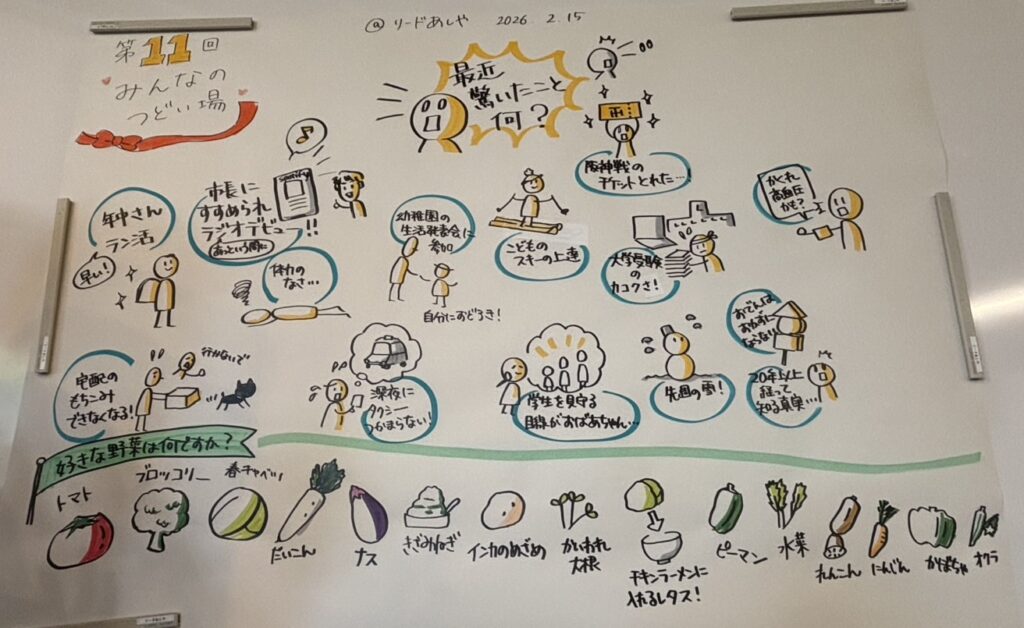 第11回
みんなの
つどい場
@リードあしや 2026.2.15
最近
驚いたこと
何?
阪神戦の
チケットとれた…!
年中さん
ラン活
早い!
市長に
すすめられ
ラジオデビュー!!
あっという間に
Spotify
体力の
なさ…
幼稚園の
生活発表会に
参加
自分におどろき!
こどもの
スキーの上達
大学受験
の
カコクさ!
かくれ
高血圧
かも?
宅配の
もちこみ
できなくなる!
行かないで
深夜に
タクシー
つかまらない!
学生を見守る
目線がおばあちゃん…
先週の雪!
おでんは
おかずに
ならない
20年以上
経って
知る真実…
好きな野菜は何ですか?
トマト
ブロッコリー
春キャベツ
だいこん
ナス
きざみねぎ
インカのめざめ
かいわれ
大根
チキンラーメンに
入れるレタス!
ピーマン
水菜
れんこん
にんじん
かぼちゃ
オクラ